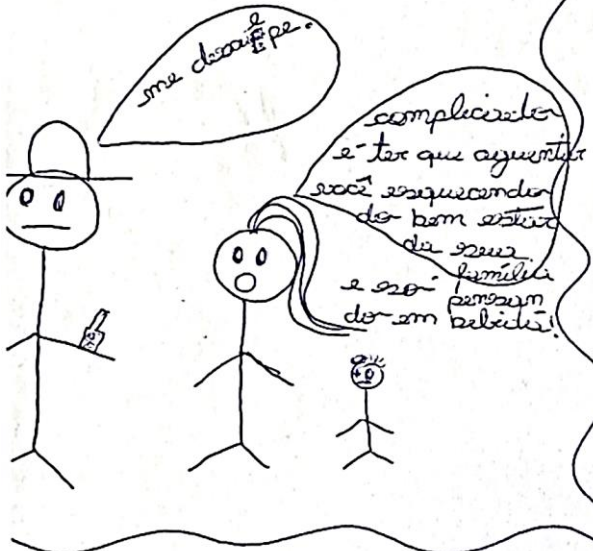 me desculpe.
complicado
é ter que aguentar
você esquecendo
do bem estar
da sua
família
e só pensan
do em bebida!